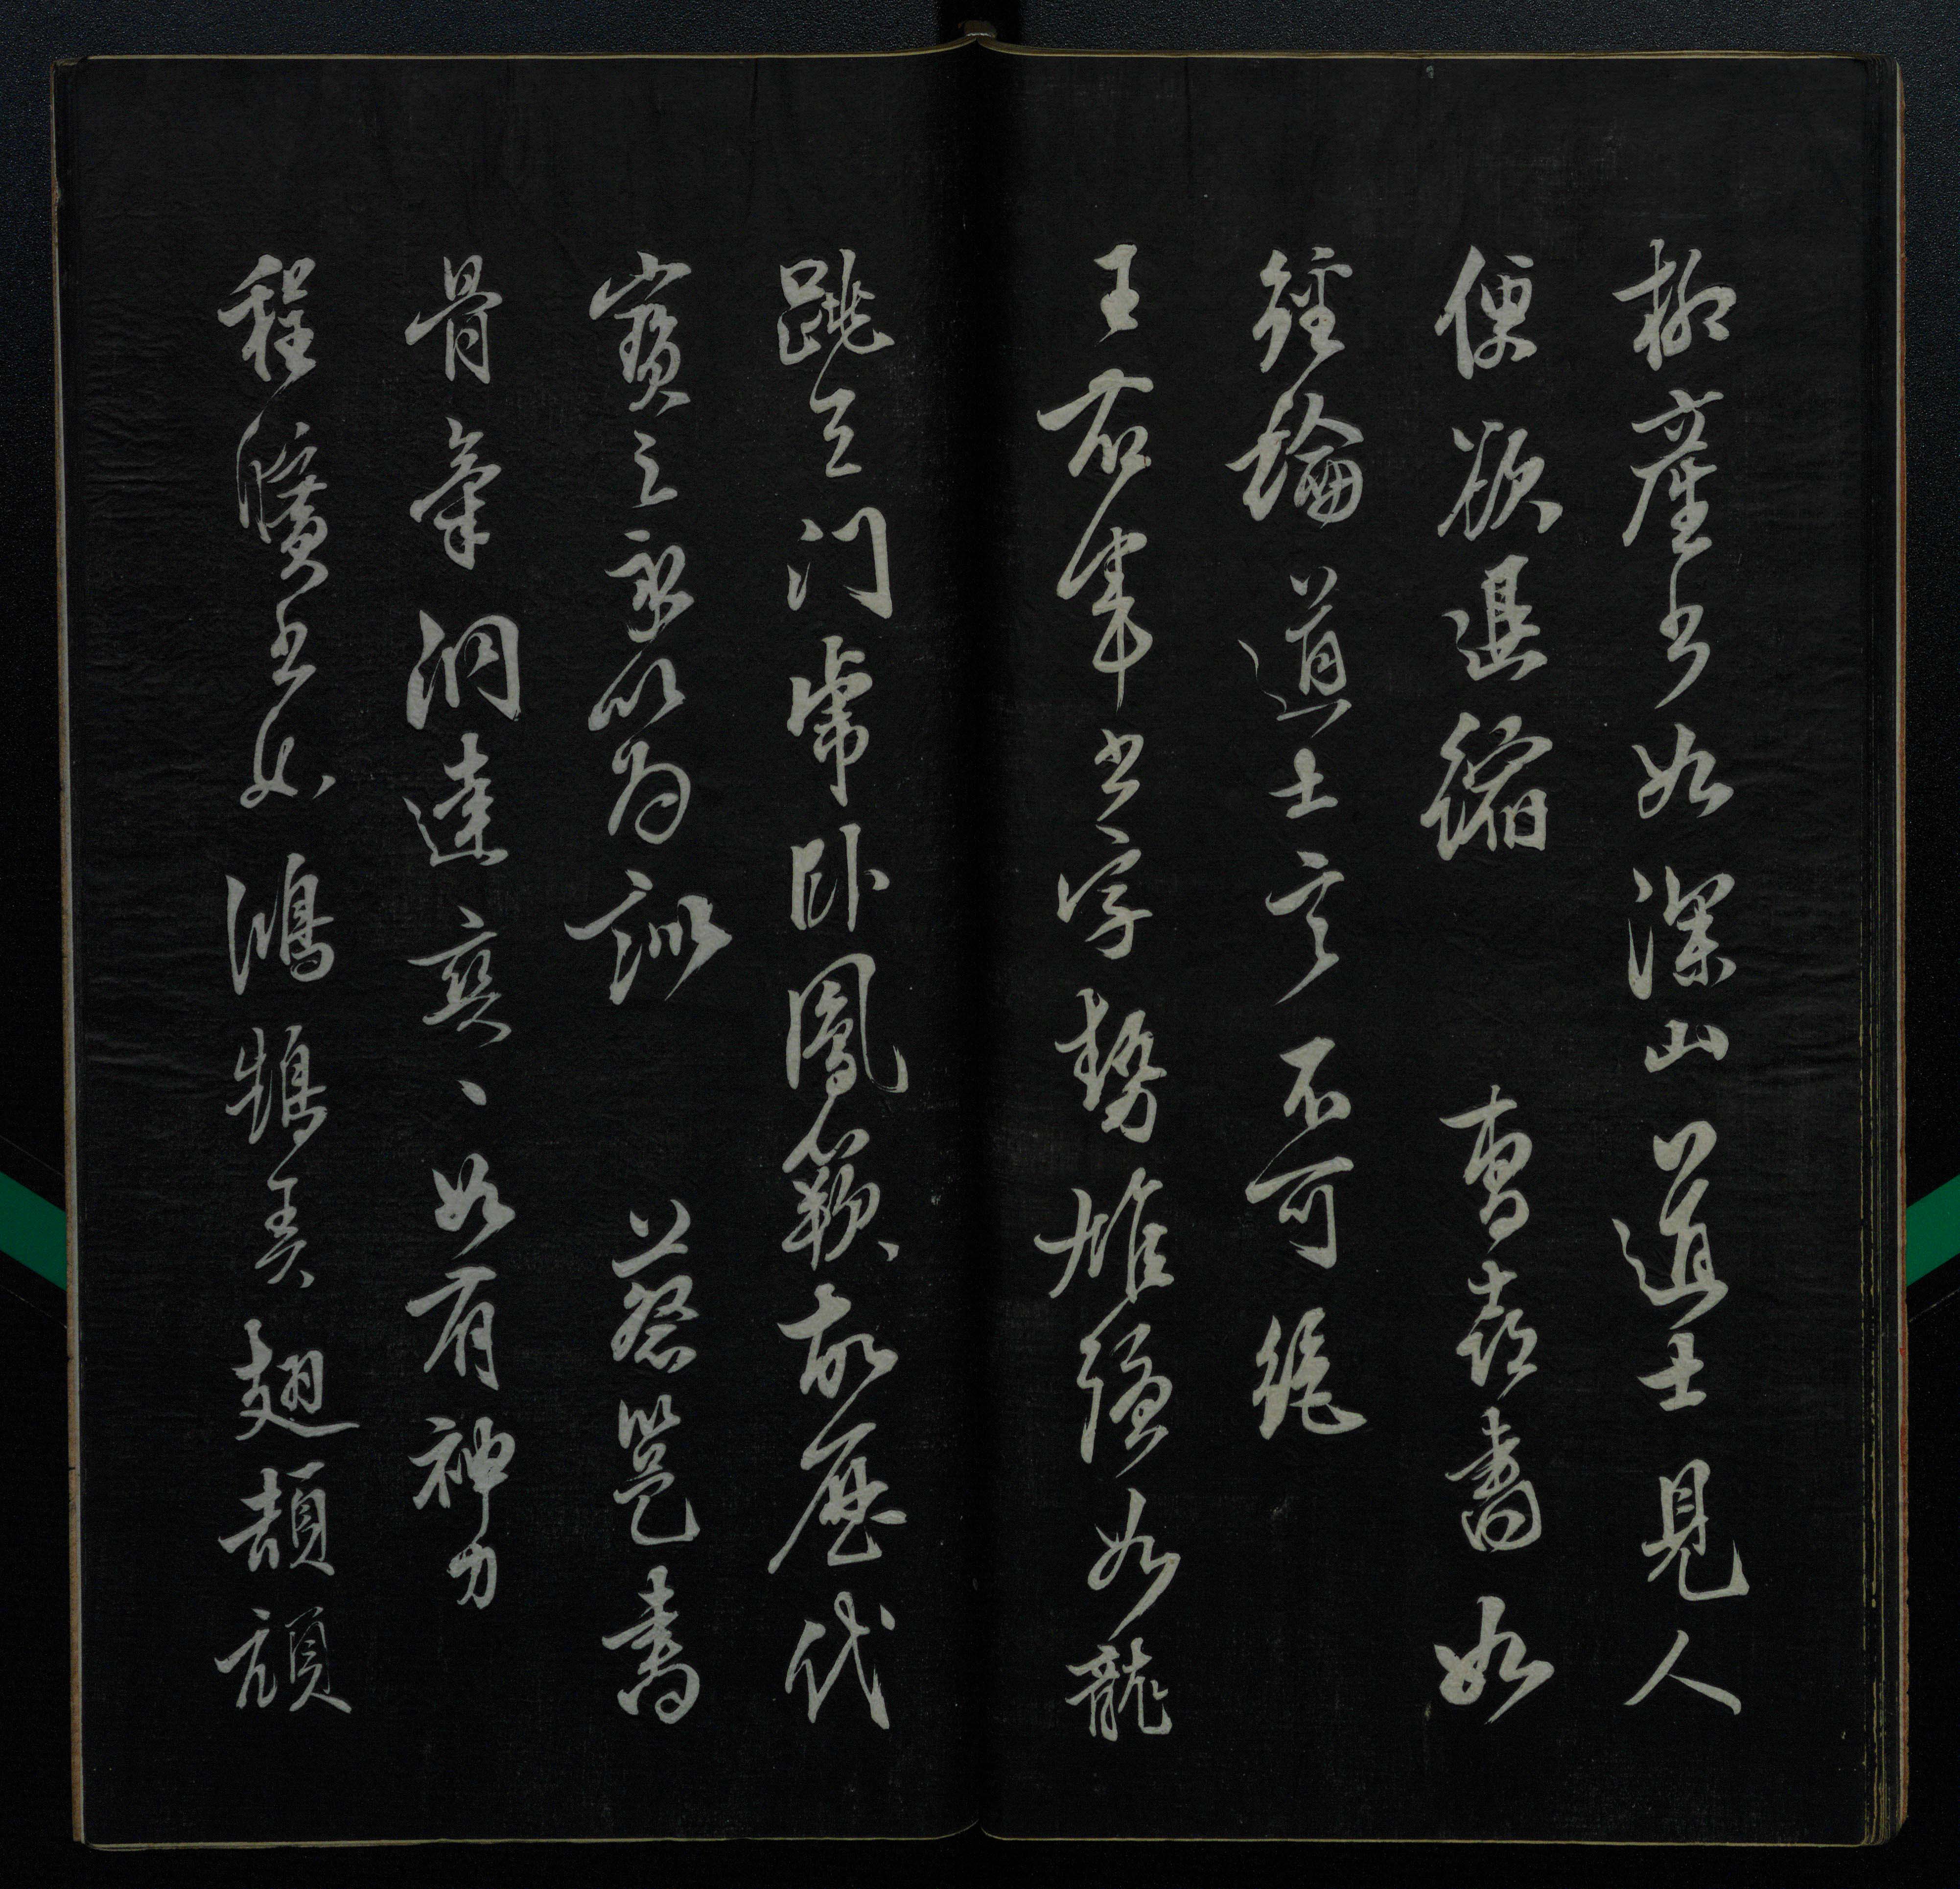 柳產書如深山道士見人
便欲退縮　曹喜書如
經論道士言不可絕
王右軍書字勢雄強如龍
跳天門虎臥鳳閣故歷代
寶之永以為訓　蔡邕書
骨氣洞達爽〻如有神力
程曠書如鴻鵠弄翅頡頏